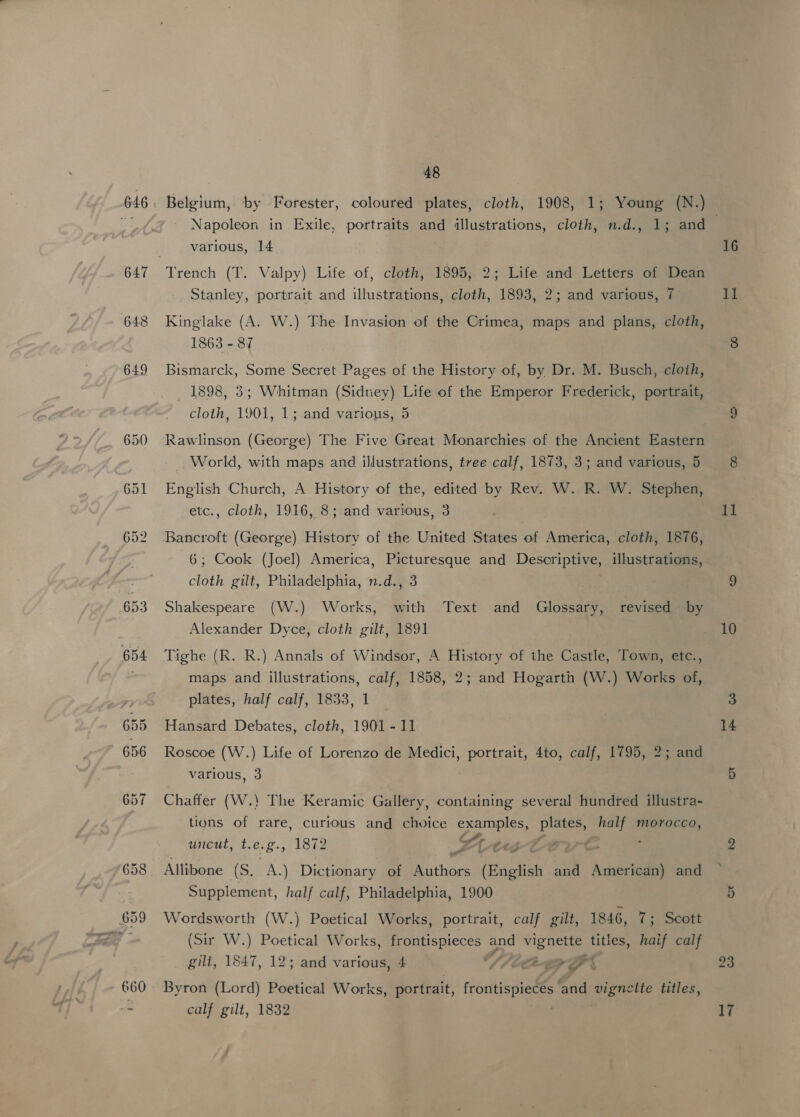 48
646 Belgium, by Forester, coloured plates, cloth, 1908, 1; Young (N.)
Napoleon in Exile, portraits and illustrations, cloth, n.d., 1; and
various, 14 16
647 Trench (T. Valpy) Life of, cloth, 1895, 2; Life and Letters of Dean
Stanley, portrait and illustrations, cloth, 1893, 2; and various, 7 11
648 Kinglake (A. W.) The Invasion of the Crimea, maps and plans, cloth,
1863 - 87 8
649 Bismarck, Some Secret Pages of the History of, by Dr. M. Busch, cloth,
1898, 3; Whitman (Sidney) Life of the Emperor Frederick, portrait,
cloth, 1901, 1; and various, 5 9
650 Rawlinson (George) The Five Great Monarchies of the Ancient Eastern
World, with maps and illustrations, tree calf, 1873, 3; and various, 5 8
651 English Church, A History of the, edited by Rev. W. R. W. Stephen,
etc., cloth, 1916, 8; and various, 3 11
652 Bancroft (George) History of the United States of America, cloth, 1876,
6; Cook (Joel) America, Picturesque and Descriptive, illustrations,
cloth gilt, Philadelphia, n.d., 3 9
653 Shakespeare (W.) Works, with Text and Glossary, revised by
Alexander Dyce, cloth gilt, 1891 10
654 Tighe (R. R.) Annals of Windsor, A History of the Castle, Town, etc.,
maps and illustrations, calf, 1858, 2; and Hogarth (W.) Works of,
plates, half calf, 1833, 1 3
655 Hansard Debates, cloth, 1901 - 11 14
656 Roscoe (W.) Life of Lorenzo de Medici, portrait, 4to, calf, 1795, 2; and
various, 3 5
657 Chaffer (W.) The Keramic Gallery, containing several hundred illustra-
tions of rare, curious and choice examples, plates, half morocco,
uncut, t.e.g., 1872 2
658 Allibone (S. A.) Dictionary of Authors (English and American) and
Supplement, half calf, Philadelphia, 1900 5
659 Wordsworth (W.) Poetical Works, portrait, calf gilt, 1846, 7; Scott
(Sir W.) Poetical Works, frontispieces and vignette titles, half calf
gilt, 1847, 12; and various, 4 23
660 Byron (Lord) Poetical Works, portrait, frontispieces and vignette titles,
calf gilt, 1832 17